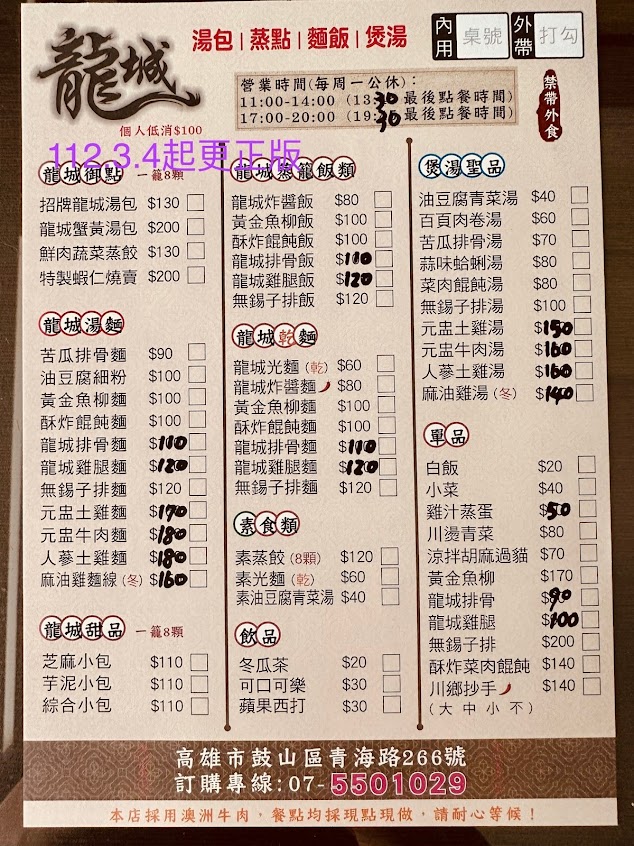 龍城
湯包|蒸點|麵飯|煲湯
內用 桌號 外帶 打勾
營業時間(每周一公休):
11:00-14:00 (13:30 最後點餐時間)
17:00-20:00 (19:30 最後點餐時間)
禁帶外食
個人低消$100
112.3.4起更正版
龍城御點 一籠8顆
招牌龍城湯包 $130
龍城蟹黃湯包 $200
鮮肉蔬菜蒸餃 $130
特製蝦仁燒賣 $200
龍城湯麵
苦瓜排骨麵 $90
油豆腐細粉 $100
黃金魚柳麵 $100
酥炸餛飩麵 $100
龍城排骨麵 $110
龍城雞腿麵 $120
無錫子排麵 $120
元盅土雞麵 $170
元盅牛肉麵 $180
人蔘土雞麵 $180
麻油雞麵線(冬) $160
龍城甜品 一籠8顆
芝麻小包 $110
芋泥小包 $110
綜合小包 $110
龍城蒸籠飯類
龍城炸醬飯 $80
黃金魚柳飯 $100
酥炸餛飩飯 $100
龍城排骨飯 $110
龍城雞腿飯 $120
無錫子排飯 $120
龍城乾麵
龍城光麵(乾) $60
龍城炸醬麵 $80
黃金魚柳麵 $100
酥炸餛飩麵 $100
龍城排骨麵 $110
龍城雞腿麵 $120
無錫子排麵 $120
素食類
素蒸餃(8顆) $120
素光麵(乾) $60
素油豆腐青菜湯 $40
飲品
冬瓜茶 $20
可口可樂 $30
蘋果西打 $30
煲湯聖品
油豆腐青菜湯 $40
百頁肉卷湯 $60
苦瓜排骨湯 $70
蒜味蛤蜊湯 $80
菜肉餛飩湯 $80
無錫子排湯 $100
元盅土雞湯 $150
元盅牛肉湯 $160
人蔘土雞湯 $160
麻油雞湯(冬) $140
單品
白飯 $20
小菜 $40
雞汁蒸蛋 $50
川燙青菜 $80
涼拌胡麻過貓 $70
黃金魚柳 $170
龍城排骨 $90
龍城雞腿 $100
無錫子排 $200
酥炸菜肉餛飩 $140
川鄉抄手 $140
(大 中 小 不)
高雄市鼓山區青海路266號
訂購專線:07-5501029
本店採用澳洲牛肉，餐點均採現點現做，請耐心等候！